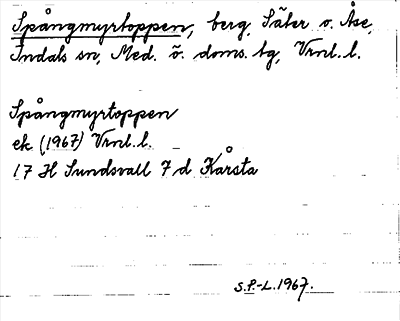 Spångmyrtoppen, berg, Säter o. Åse,
Indals sn, Med. ö. doms. tg, Vrnl. l.
Spångmyrtoppen
ek (1967) Vrnl. l.
17 H Sundsvall 7 d Kårsta
S.P.-L. 1967.